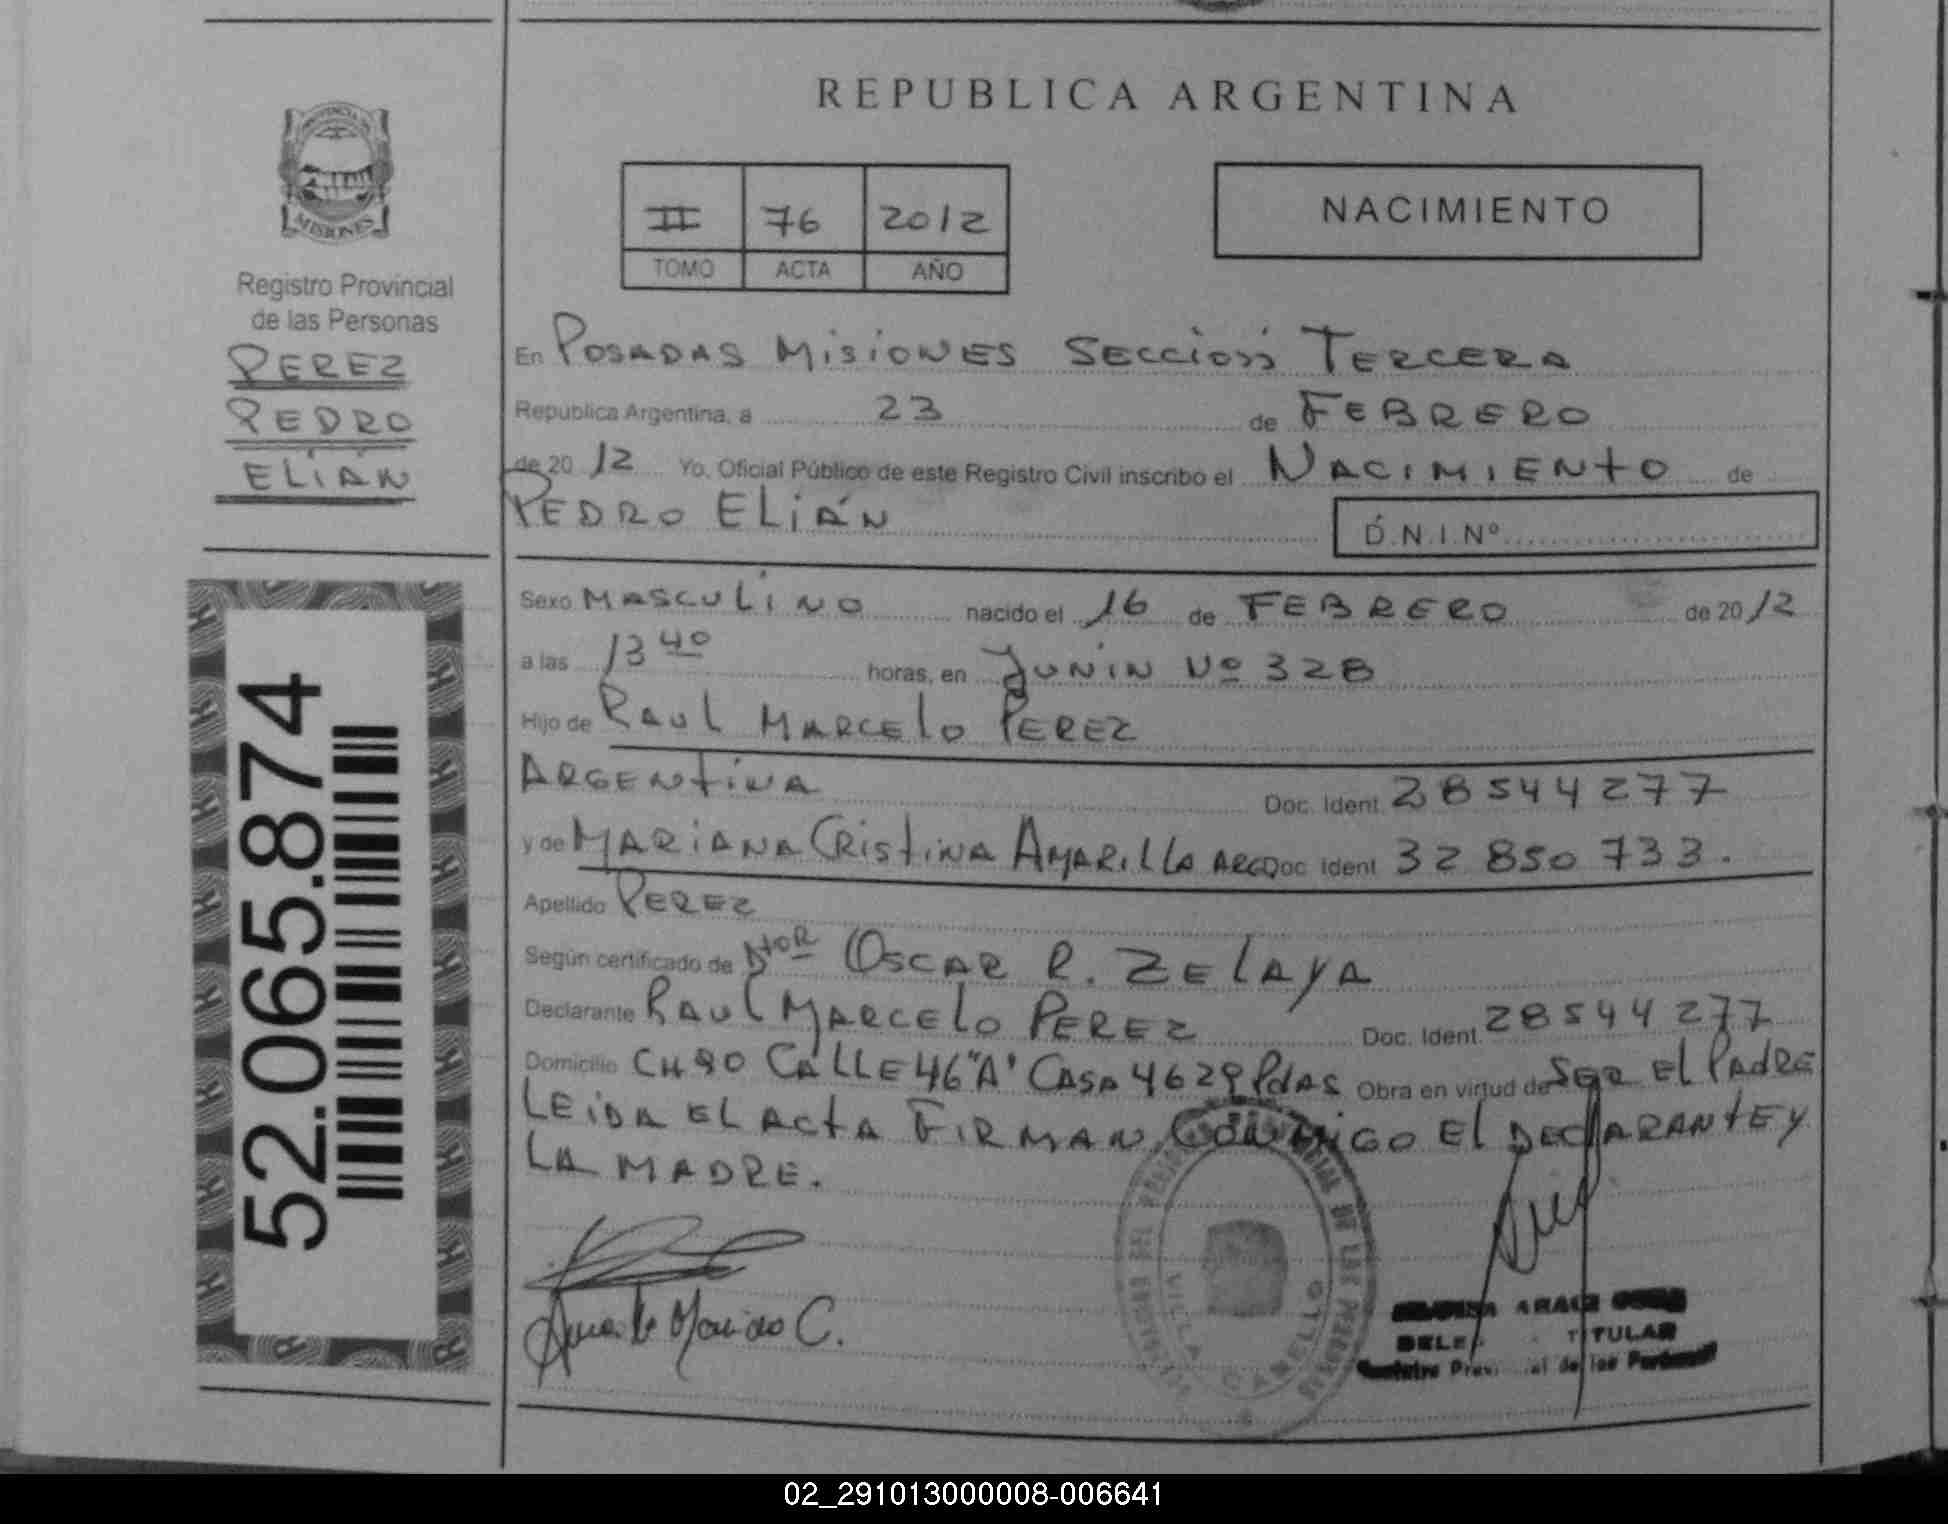 REPUBLICA ARGENTINA
PROVINCIA DE
MISIONES
Registro Provincial
de las Personas
PEREZ
PEDRO
ELIÁN
52.065.874
II 76 2012
TOMO ACTA AÑO
NACIMIENTO
En POSADAS MISIONES SECCION TERCERA
Republica Argentina, a 23 de FEBRERO
de 20 12 Yo. Oficial Público de este Registro Civil inscribo el NACIMIENTO de
PEDRO ELIÁN
D.N.I.Nº
Sexo MASCULINO nacido el 16 de FEBRERO de 20 12
a las 13 40 horas, en JUNIN Nº 328
Hijo de RAUL MARCELO PEREZ
ARGENTINA Doc. Ident 28544277
y de MARIANA CRISTINA AMARILLA ARG Doc Ident 32 850 733.
Apellido PEREZ
Según certificado de OSCAR R. ZELAYA
Declarante RAUL MARCELO PEREZ Doc. Ident. 28544277
Domicilio CH 90 CALLE 46 "A" CASA 4629 Pdas Obra en virtud de SER EL PADRE
LEIDA EL ACTA FIRMAN CONMIGO EL DECLARANTE Y
LA MADRE.
VILLA CABELLO
TITULAR
de las
02_291013000008-006641